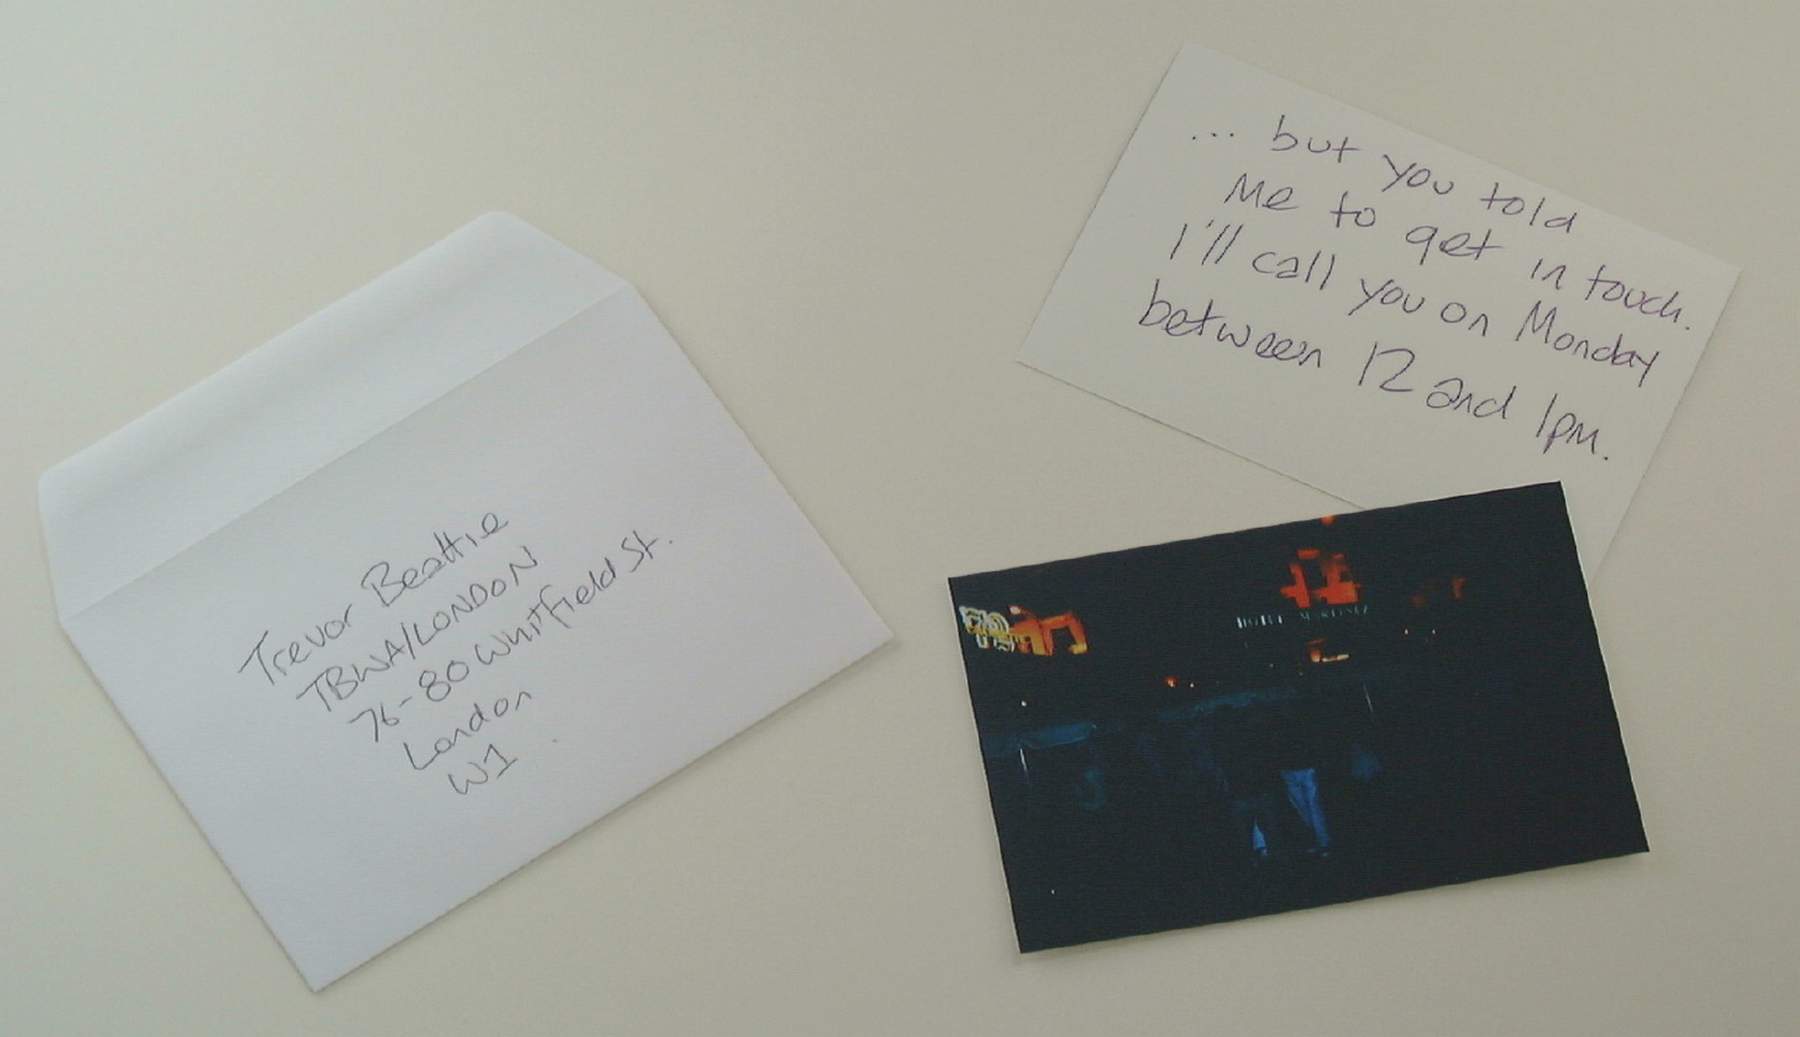 Trevor Beattie
TBWA/LONDON
76-80 Whitfield St.
London
W1
... but you told
Me to get in touch.
I'll call you on Monday
between 12 and 1pm.
HOTEL MARTINEZ